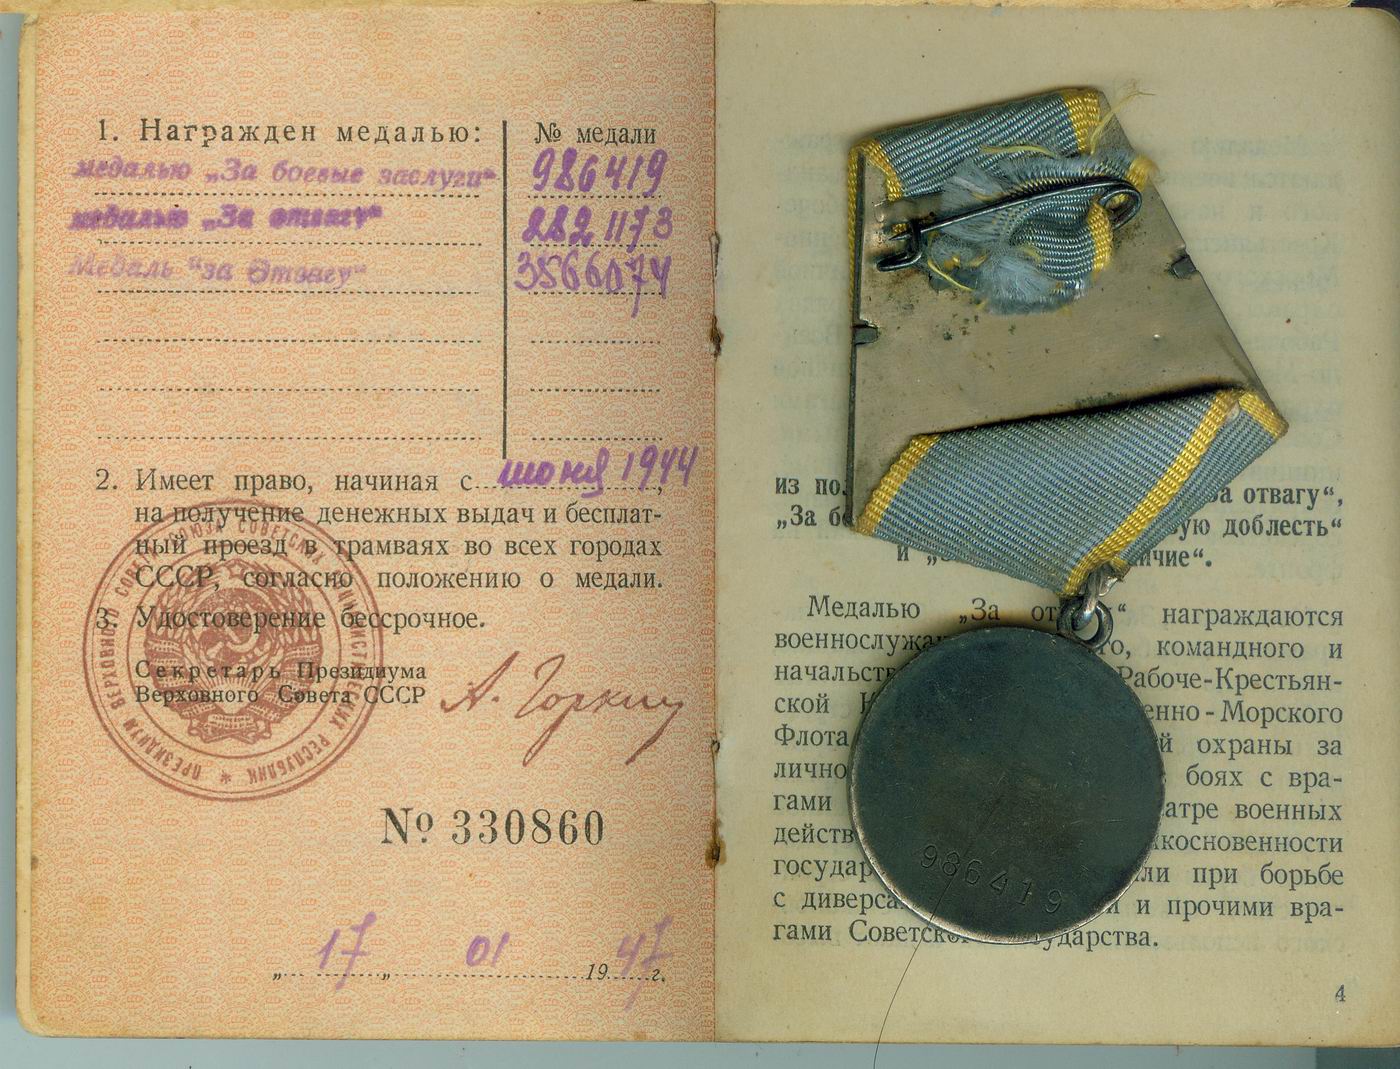 1. Награжден медалью: № медали
медалью „За боевые заслуги“ 986419
медалью „За отвагу“ 2821173
Медаль "за Отвагу" 3566074
2. Имеет право, начиная с июня 1944,
на получение денежных выдач и бесплат-
ный проезд в трамваях во всех городах
СССР, согласно положению о медали.
3. Удостоверение бессрочное.
Секретарь Президиума
Верховного Совета СССР А. Горкин
ПРЕЗИДИУМ ВЕРХОВНОГО СОВЕТА СОЮЗА СОВЕТСКИХ СОЦИАЛИСТИЧЕСКИХ РЕСПУБЛИК *
№ 330860
„17„ 01 1947г.
из отвагу“,
„За вую доблесть“
и
Медалью „За награждаются
командного и
Рабоче-Крестьян-
ской Морского
Флота охраны за
боях с вра-
гами военных
государ при борьбе
с и прочими вра-
гами
986419
4